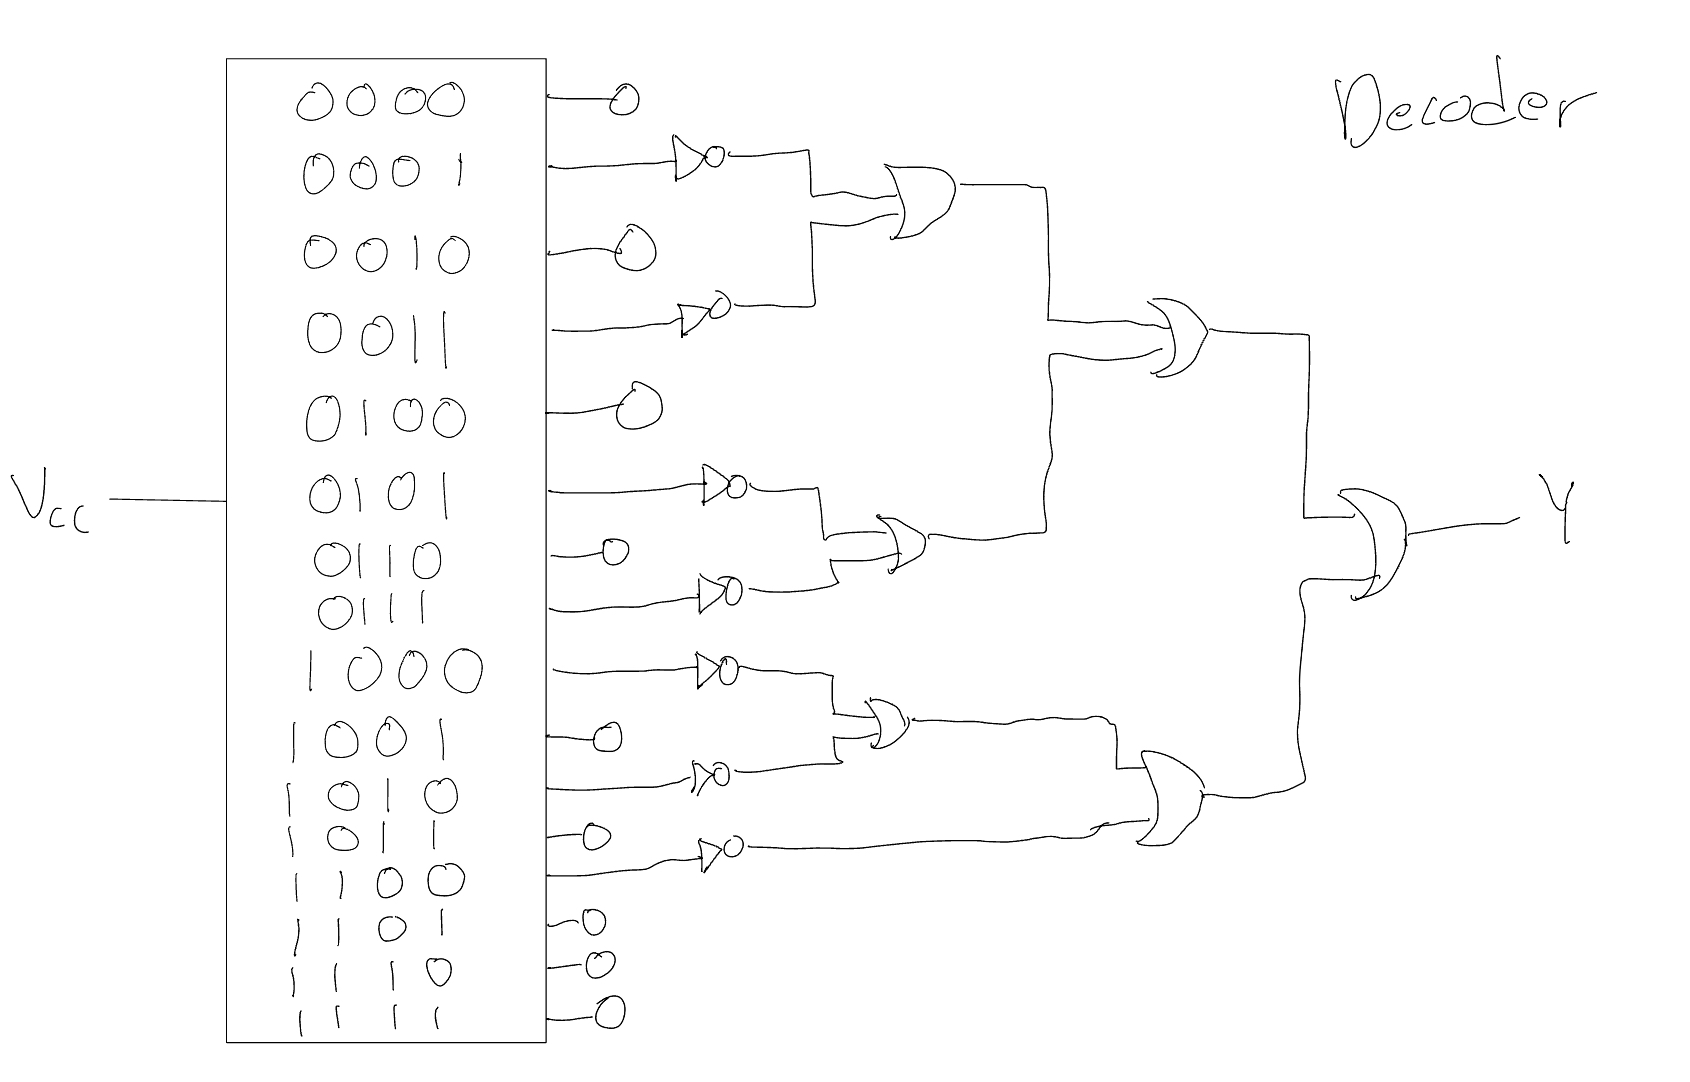 Decoder
0 0 0 0
0 0 0 1
0 0 1 0
0 0 1 1
0 1 0 0
0 1 0 1
0 1 1 0
0 1 1 1
1 0 0 0
1 0 0 1
1 0 1 0
1 0 1 1
1 1 0 0
1 1 0 1
1 1 1 0
1 1 1 1
Vcc
Y